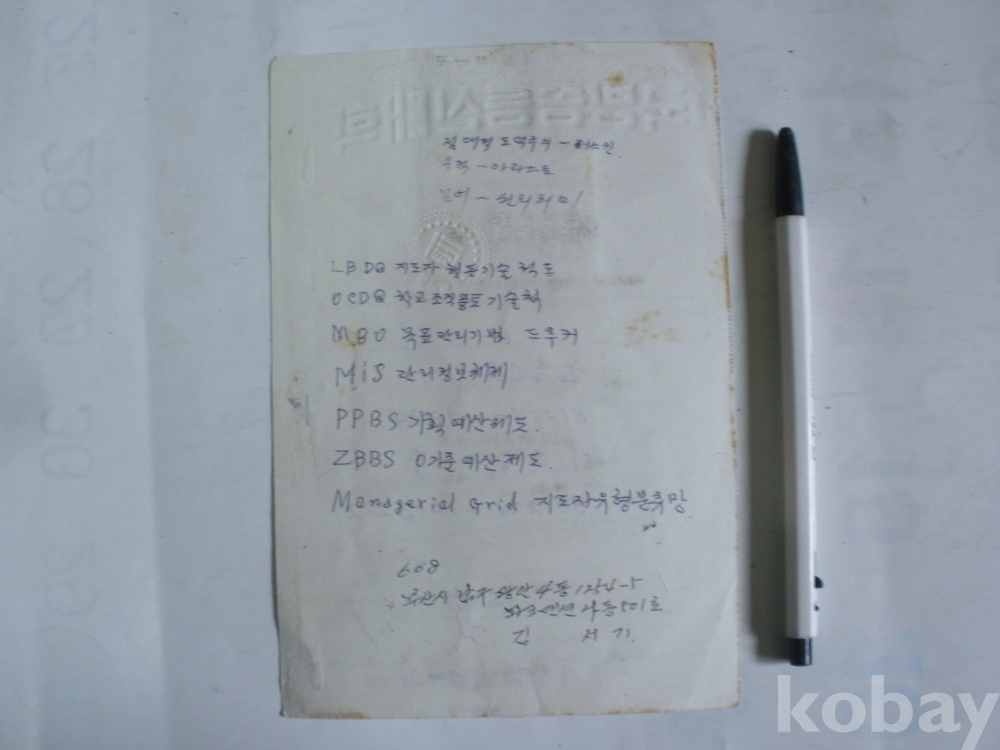 절대적 도덕주의 - 러스킨
목적 - 아리스토
언어 - 원리의 미
LBDQ 지도자 행동기술 척도
OCDQ 학교조직풍토기술척
MBO 목표관리기법 드루커
MiS 관리정보체제
PPBS 기획예산제도.
ZBBS 0기준예산제도.
Managerial Grid 지도자유형분류망
608
부산시 남구 광안4동 1254-5
파크맨션 나동 501호
김 서기
kobay